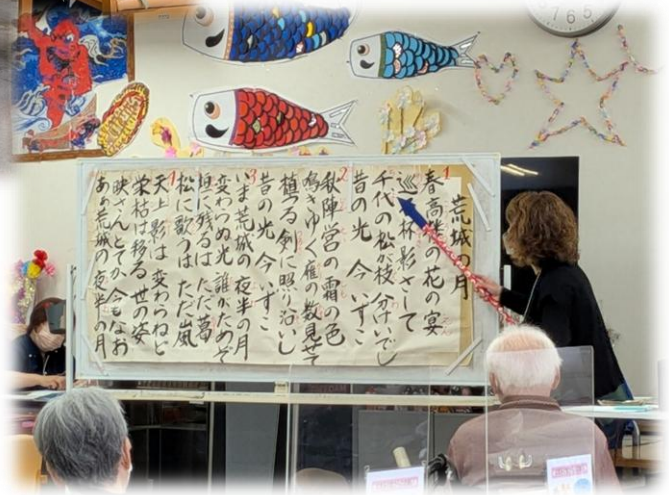 荒城の月
1 春高楼の花の宴
巡 杯影さして
千代の松が枝 分けいでし
昔の光 今いずこ
2 秋陣営の霜の色
鳴きゆく雁の数見せて
植うる剣に照り沿いし
昔の光 今いずこ
3 いま荒城の夜半の月
変わらぬ光 誰がためぞ
垣に残るは ただ葛
松に歌うは ただ嵐
4 天上影は 変わらねど
栄枯は移る 世の姿
映さんとてか 今もなお
あぁ荒城の夜半の月
7 6 5